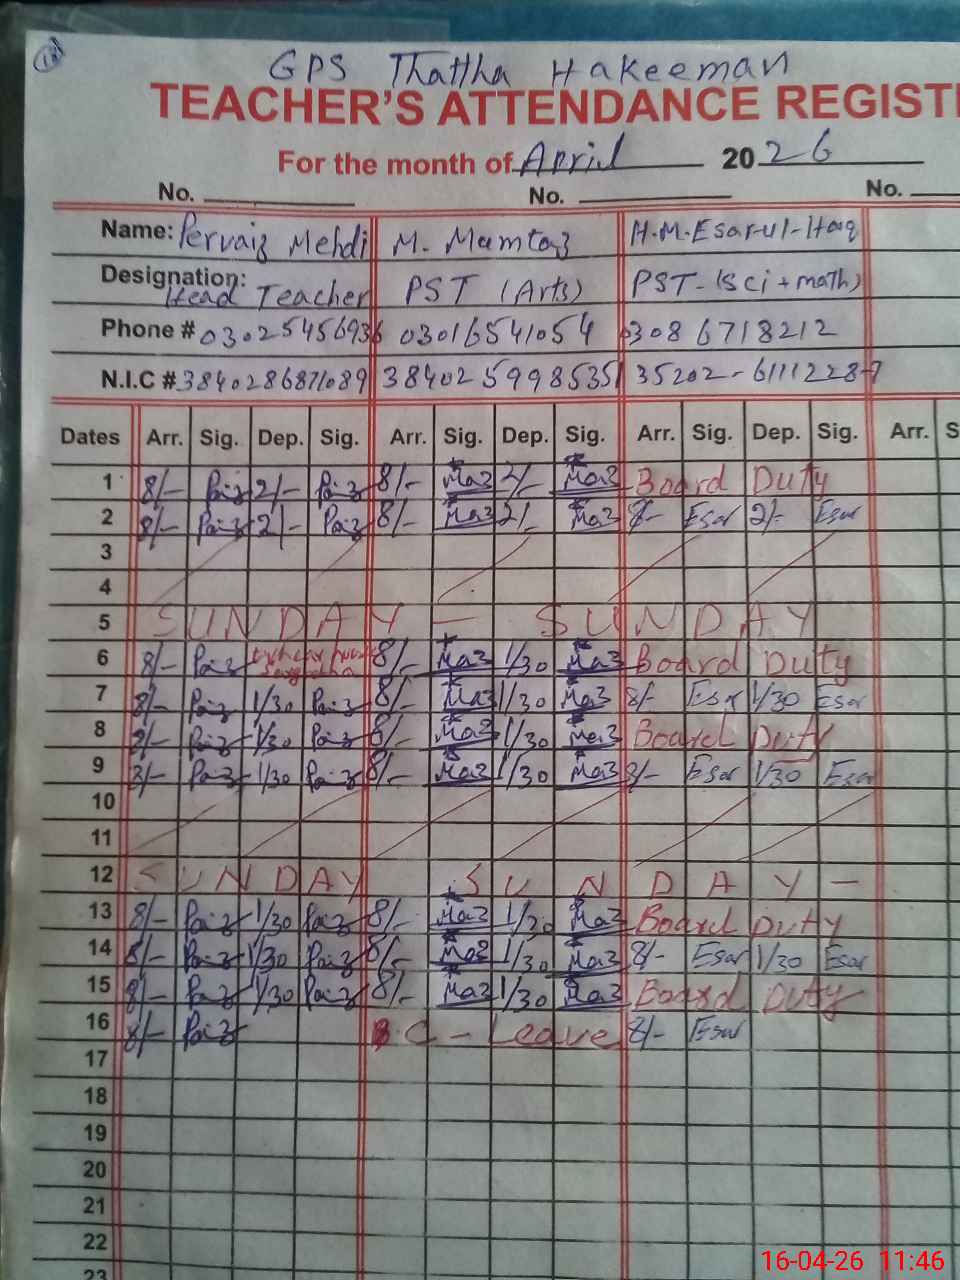 GPS Thattha Hakeeman
TEACHER'S ATTENDANCE REGIST
For the month of April 2026
No. No. No.
Name: Pervaiz Mehdi M. Mumtaz H.M.Esar-ul-Haq
Designation: Head Teacher PST (Arts) PST-(Sci+math)
Phone # 03025456936 03016541054 03086718212
N.I.C # 3840286871089 3840259985351 35202-6111228-7
Dates Arr. Sig. Dep. Sig. Arr. Sig. Dep. Sig. Arr. Sig. Dep. Sig. Arr. S
1 8/- 2/- 8/- 2/- Board Duty
2 8/- 2/- 8/- 2/- 8/- Esar 2/- Esar
3
4
5 SUNDAY - SUNDAY
6 8/- 8/- 1/30 Board Duty
7 8/- 1/30 8/- 1/30 8/- Esar 1/30 Esar
8 8/- 1/30 8/- 1/30 Board Duty
9 8/- 1/30 8/- 1/30 8/- Esar 1/30 Esar
10
11
12 SUNDAY SUNDAY -
13 8/- 1/30 8/- 1/30 Board Duty
14 8/- 1/30 8/- 1/30 8/- Esar 1/30 Esar
15 8/- 1/30 8/- 1/30 Board Duty
16 8/- C - Leave 8/- Esar
17
18
19
20
21
22
23
16-04-26 11:46